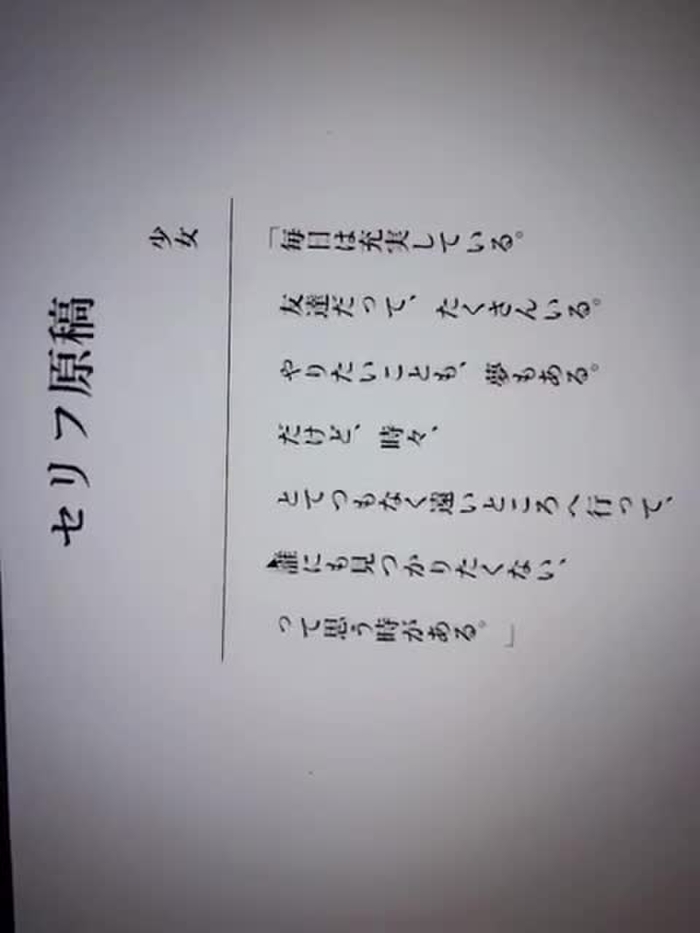 セリフ原稿
少女
「毎日は充実している。
友達だって、たくさんいる。
やりたいことも、夢もある。
だけど、時々、
とてつもなく遠いところへ行って、
誰にも見つかりたくない、
って思う時がある。」